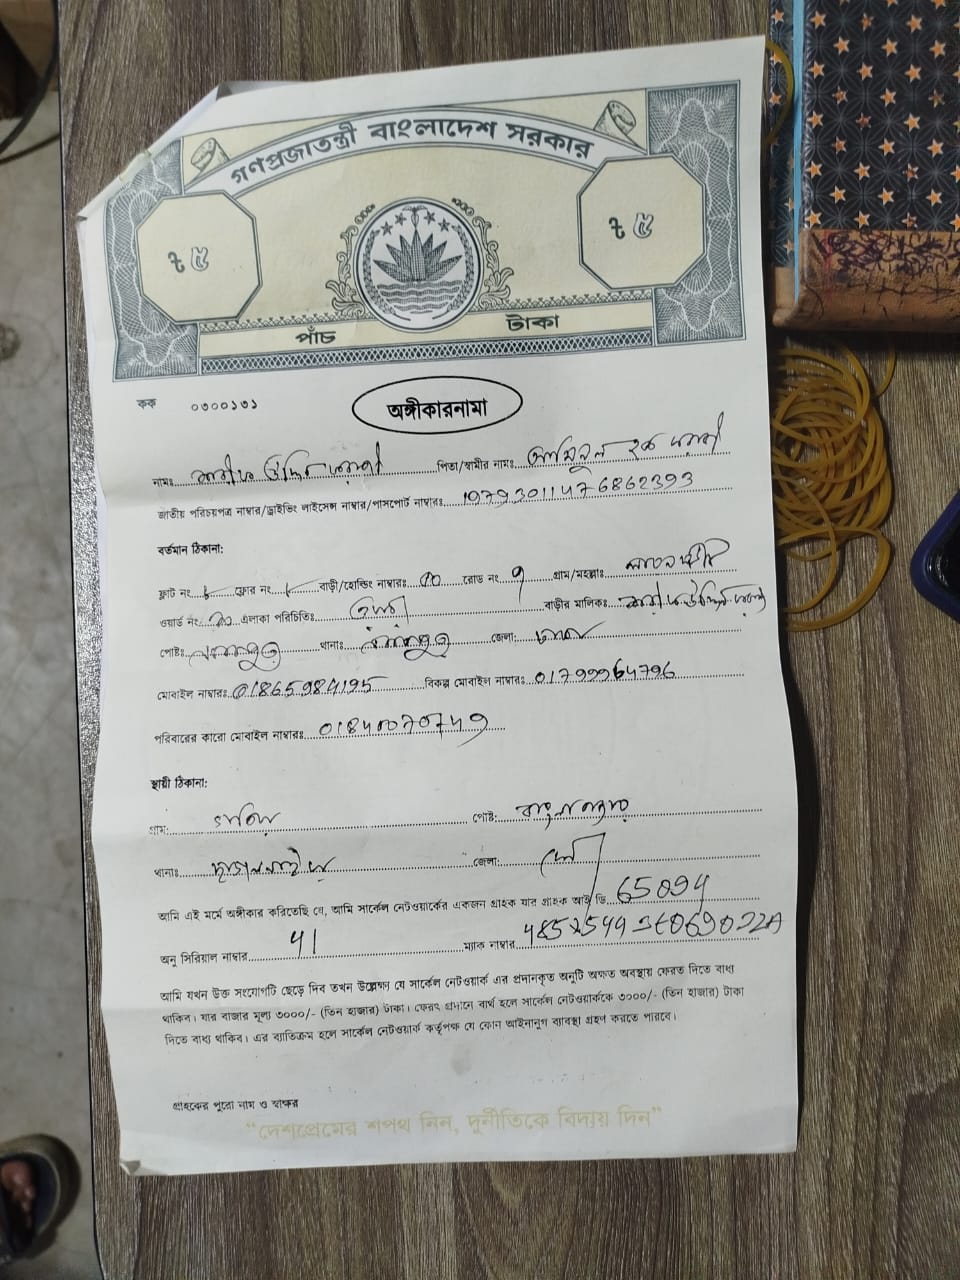 গণপ্রজাতন্ত্রী বাংলাদেশ সরকার
৳ ৫ ৳ ৫
পাঁচ টাকা
কক ০৩০০১৩১
অঙ্গীকারনামা
নামঃ পিতা/স্বামীর নামঃ আমিনুল হক
জাতীয় পরিচয়পত্র নাম্বার/ড্রাইভিং লাইসেন্স নাম্বার/পাসপোর্ট নাম্বারঃ 19793011476862393
বর্তমান ঠিকানা:
ফ্লাট নং ফ্লোর নং বাড়ী/হোল্ডিং নাম্বারঃ রোড নং ৭ গ্রাম/মহল্লাঃ
ওয়ার্ড নং এলাকা পরিচিতিঃ বাড়ীর মালিকঃ
পোষ্টঃ থানাঃ জেলা: ঢাকা
মোবাইল নাম্বারঃ 01865984195 বিকল্প মোবাইল নাম্বারঃ 01799964796
পরিবারের কারো মোবাইল নাম্বারঃ
স্থায়ী ঠিকানা:
গ্রাম: পোষ্ট:
থানাঃ জেলা: ফেনী
আমি এই মর্মে অঙ্গীকার করিতেছি যে, আমি সার্কেল নেটওয়ার্কের একজন গ্রাহক যার গ্রাহক আই ডি 65094
অনু সিরিয়াল নাম্বার 41 ম্যাক নাম্বার
আমি যখন উক্ত সংযোগটি ছেড়ে দিব তখন উল্লেখ্য যে সার্কেল নেটওয়ার্ক এর প্রদানকৃত অনুটি অক্ষত অবস্থায় ফেরত দিতে বাধ্য
থাকিব। যার বাজার মূল্য ৩০০০/- (তিন হাজার) টাকা। ফেরৎ প্রদানে ব্যর্থ হলে সার্কেল নেটওয়ার্ককে ৩০০০/- (তিন হাজার) টাকা
দিতে বাধ্য থাকিব। এর ব্যতিক্রম হলে সার্কেল নেটওয়ার্ক কর্তৃপক্ষ যে কোন আইনানুগ ব্যবস্থা গ্রহণ করতে পারবে।
গ্রাহকের পুরো নাম ও স্বাক্ষর
"দেশপ্রেমের শপথ নিন, দুর্নীতিকে বিদায় দিন"